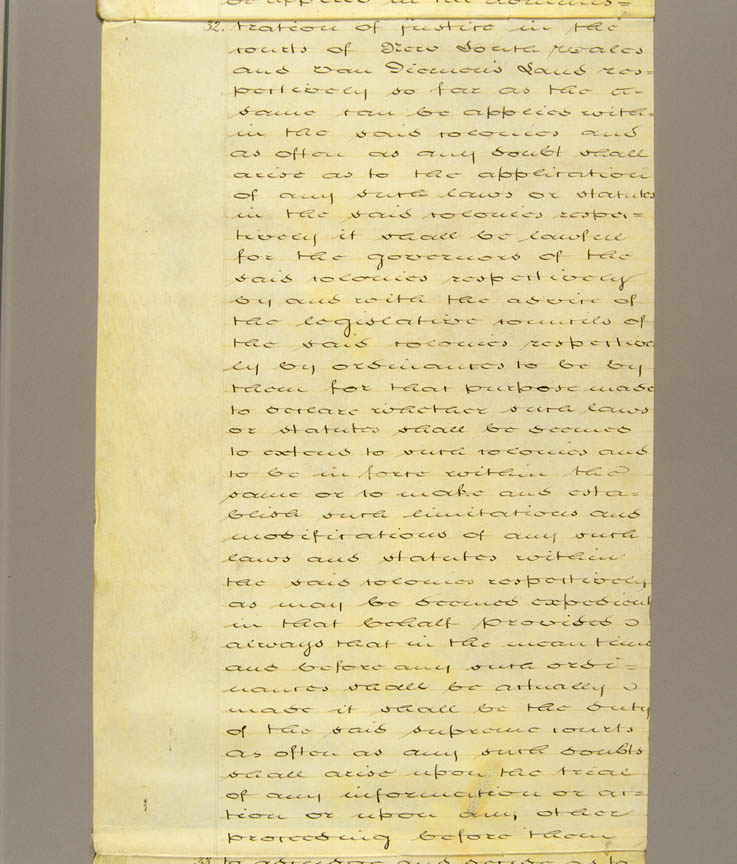 be applied in the adminis=
32. tration of justice in the
courts of New South Wales
and Van Diemen's Land res=
pectively so far as the
same can be applied with=
in the said colonies and
as often as any doubt shall
arise as to the application
of any such laws or statutes
in the said colonies respec=
tively it shall be lawful
for the governors of the
said colonies respectively
by and with the advice of
the legislative councils of
the said colonies respective
ly by ordinances to be by
them for that purpose made
to declare whether such laws
or statutes shall be deemed
to extend to such colonies and
to be in force within the
same or to make and esta=
blish such limitations and
modifications of any such
laws and statutes within
the said colonies respectively
as may be deemed expedient
in that behalf provided
always that in the mean time
and before any such ordi=
nances shall be actually
made it shall be the duty
of the said supreme courts
as often as any such doubts
shall arise upon the trial
of any information or ac=
tion or upon any other
proceeding before them
33. to adjudge and decide as to